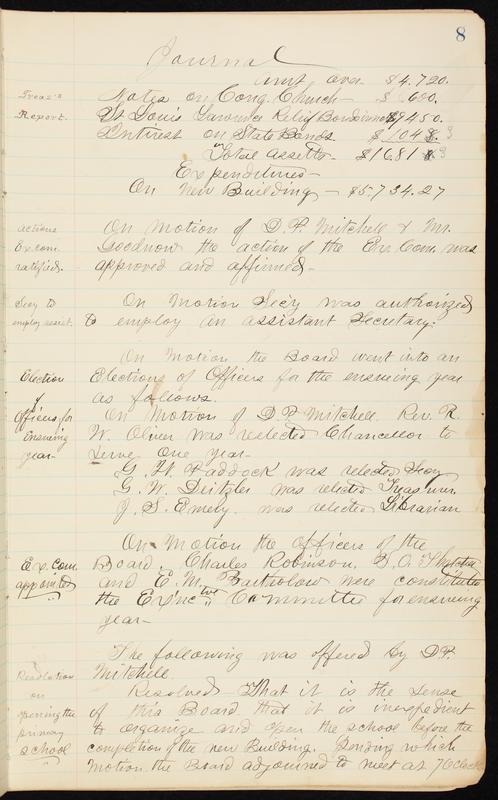 8
Journal
amt over $4.720.
Treas's Notes on Cong. Church — $ 600.
Report. St Louis Lawrence Relief Bond $9450.
Interest on State Bonds $ 104
Total assetts — $1681
Expenditures —
On New Building — $5,734.27
actions On Motion of D.P. Mitchell & Mr.
Ex com. Goodnow the action of the Ex Com. was
ratified. approved and affirmed —
Secy to On Motion Secy was authorized
employ assist. to employ an assistant Secretary:
On Motion the Board went into an
Election Elections of Officers for the ensueing year
of as follows.
Officers for On Motion of D P Mitchell Rev. R.
ensuing W. Oliver was reelected Chancellor to
year — serve one year —
G. W. Paddock was relected Secy
G. W. Deitzler was relected Treasurer
J. S. Emery was relected Librarian
On Motion the officers of the
Ex. Com. Board, Charles Robinson, G. A. Thatcher
appointed and E. M. Bartholow were constituted
the Ex'nc tve Committee for ensueing
year —
The following was offered by D.P.
Resolution Mitchell
on Resolved — That it is the sense
opening the of this Board that it is inexpedient
primary to organize and open the school before the
school completion of the new Building. Pending which
motion the Board adjourned to meet at 7 O'clock